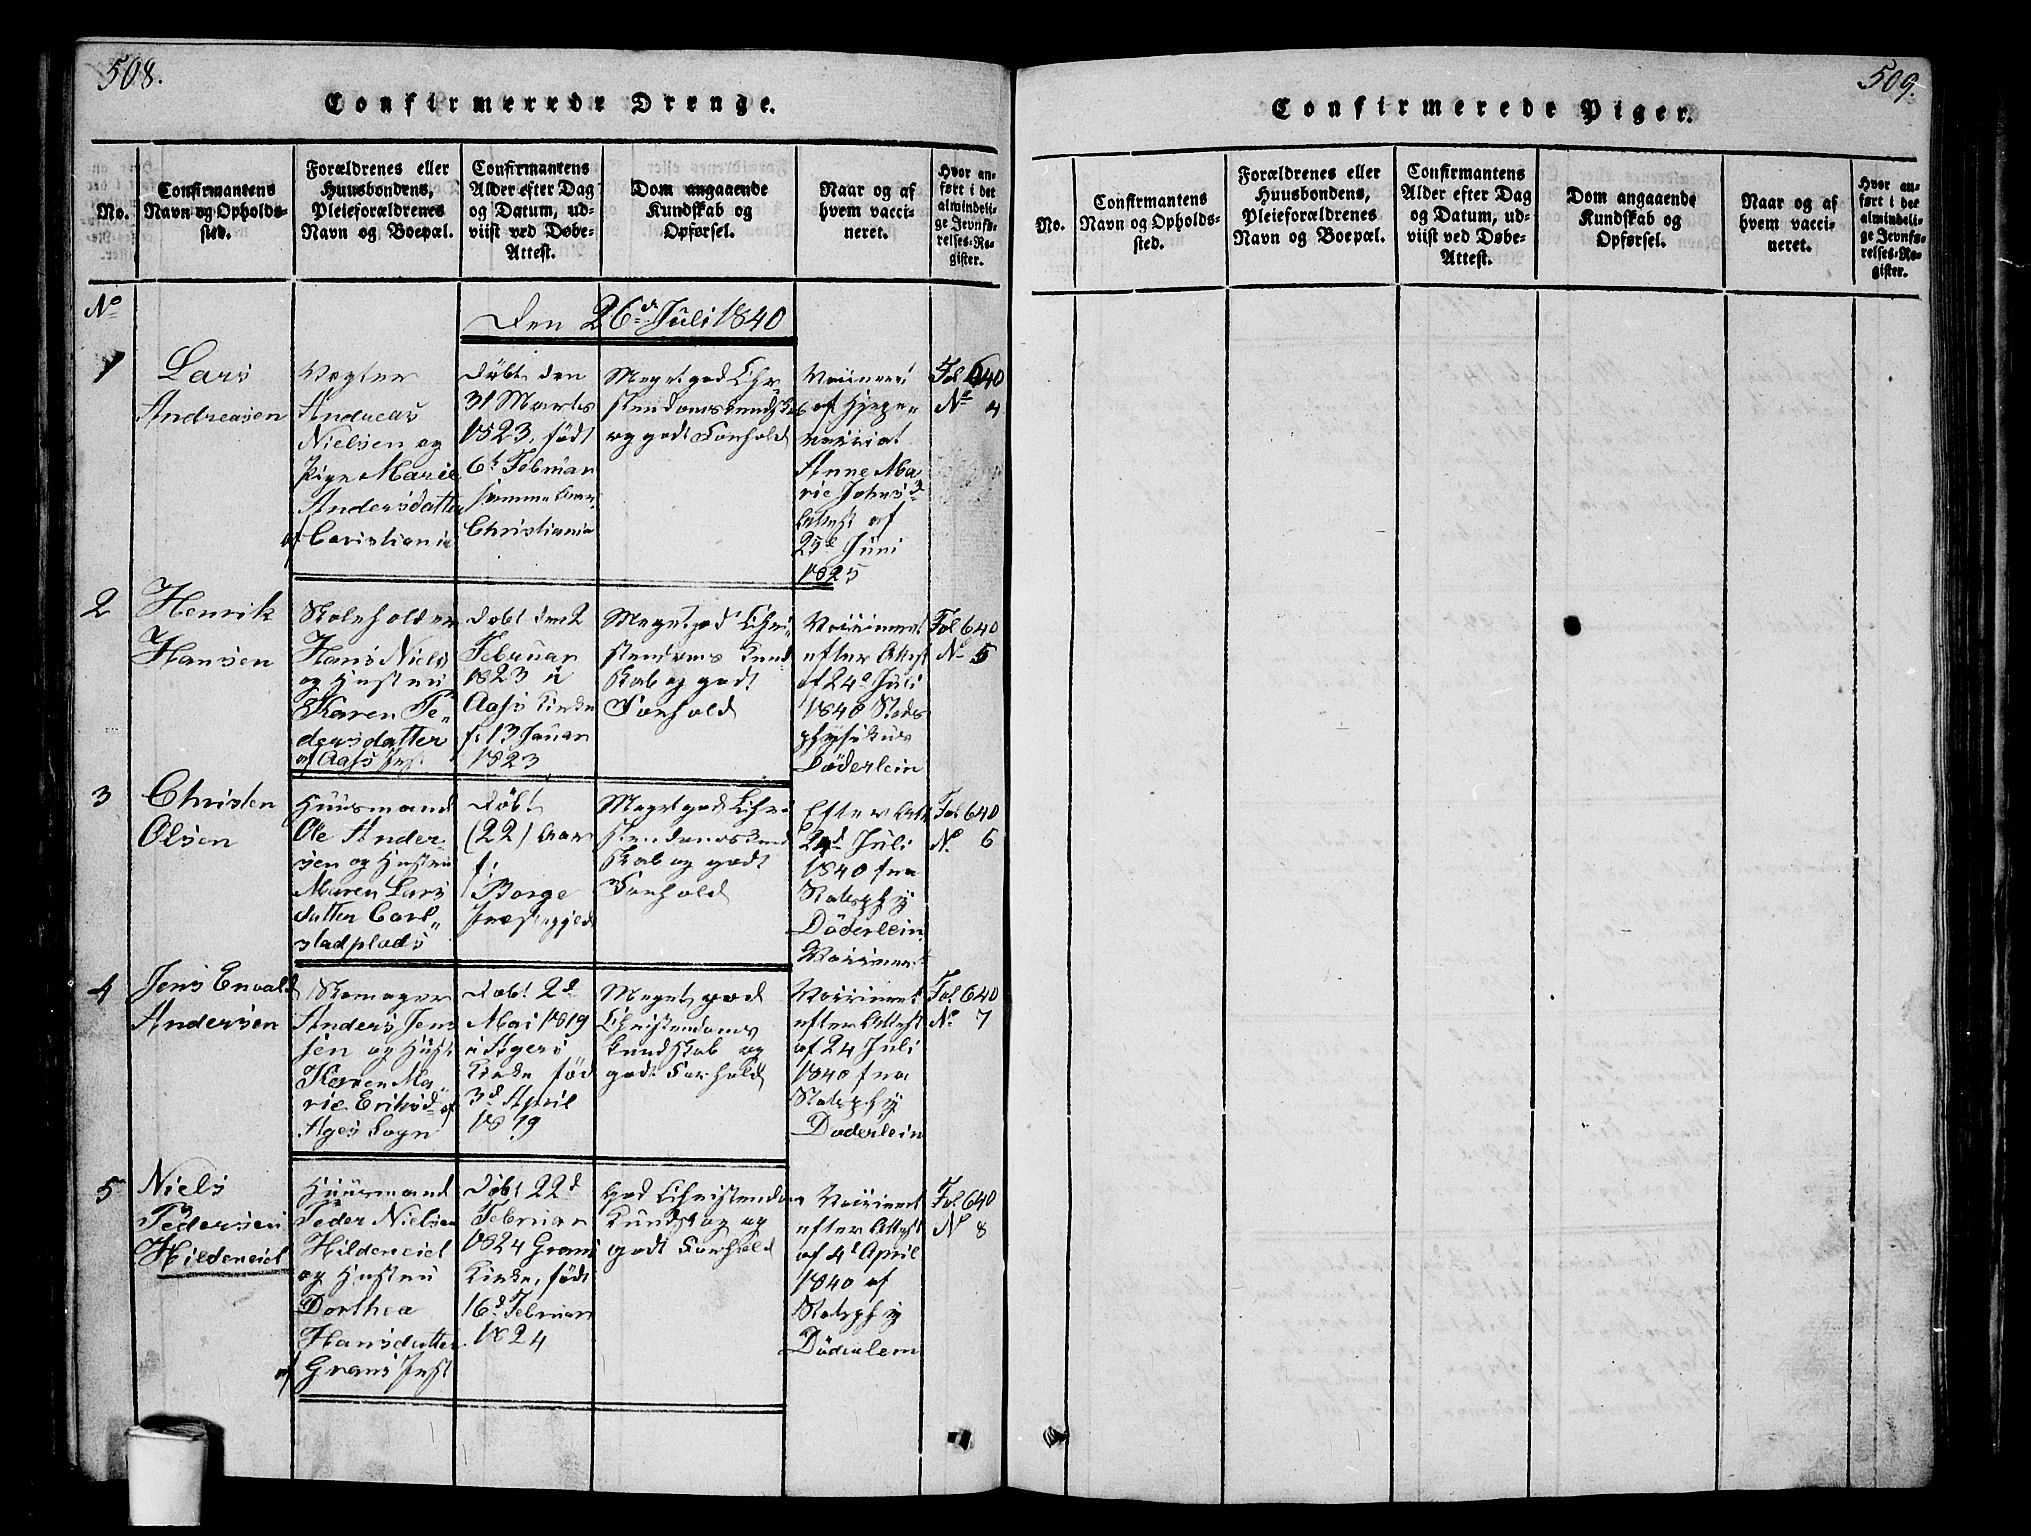 508.
Confirmerede Drenge.
No.
Confirmantens
Navn og Opholds-
sted.
Forældrenes eller
Huusbondens,
Pleieforældrenes
Navn og Boepæl.
Confirmantens
Alder efter Dag
og Datum, ud-
viist ved Døbe-
Attest.
Dom angaaende
Kundskab og
Opførsel.
Naar og af
hvem vacci-
neret.
Hvor an-
ført i det
almindeli-
ge Jevnfø-
relses-Re-
gister.
No
Den 26de Juli 1840
1
Lars
Andreasen
Vegter
Andreas
Nielsen og
Pige Marie
Andersdatter
af Christiania
Døbt den
31 Marts
1823, født
6t Februar
samme Aar
Christiania
Meget god Chr
stendomskundsk
og godt Forhold
af
Anne Ma
rie Johns
Attest af
25de Juni
1825
Fol 640
No 4
2
Henrik
Hansen
Skoleholder
Hans Niels
og Hustru
Karen Pe-
dersdatter
af Aass Præst
Døbt den 2
Februar
1823 i
Aass Kirke
f. 13 Januar
1823
Meget god Chri-
stendoms Kund
skab og godt
Forhold
Vaccineret
efter Attest
af 24d Juli
1840 Stads
physikus
Döderlein
Fol 640
No 5
3
Christen
Olsen
Huusmand
Ole Ander-
sen og Hustru
Maren Lars
datter Carl-
stadplads
Døbt
(22) Aar
f.
Borge
Præstegjeld
Meget god Chri
stendomskund
skab og godt
Forhold
Efter Att
24d Juli
1840 fra
Statsphy
Döderlein
Vaccineret
Fol 640
No. 6
4
Jens Envald
Andersen
Skomager
Anders Jens
sen og Hust
Karen Ma-
rie Eriksd af
Agers Sogn
Døbt 2d
Mai 1819
i Agers
Kirke fød
3d April
1819
Meget god
Christendoms
kundskab og
godt Forhold
Vaccineret
efter Attest
af 24 Juli
1840 fra
Statsphy
Døderlein
Fol 640
No. 7
5
Niels
Pedersen
Hildeneiet
Huusmand
Peder Nielsen
Hildeneiet
og Hustru
Dorthea
Hansdatter
af Grans Præst
Døbt 22d
Februar
1824 Grans
Kirke, født
16d Februar
1824
God Christendom
Kundskab og
godt Forhold
Vaccineret
efter Attest
af 4d April
1840 af
Statsphy
Döderlein
Fol 640
No 8
509.
Confirmerede Piger.
No.
Confirmantens
Navn og Opholds-
sted.
Forældrenes eller
Huusbondens,
Pleieforældrenes
Navn og Boepæl.
Confirmantens
Alder efter Dag
og Datum, ud-
viist ved Døbe-
Attest.
Dom angaaende
Kundskab og
Opførsel.
Naar og af
hvem vacci-
neret.
Hvor an-
ført i det
almindeli-
ge Jevnfø-
relses-Re-
gister.